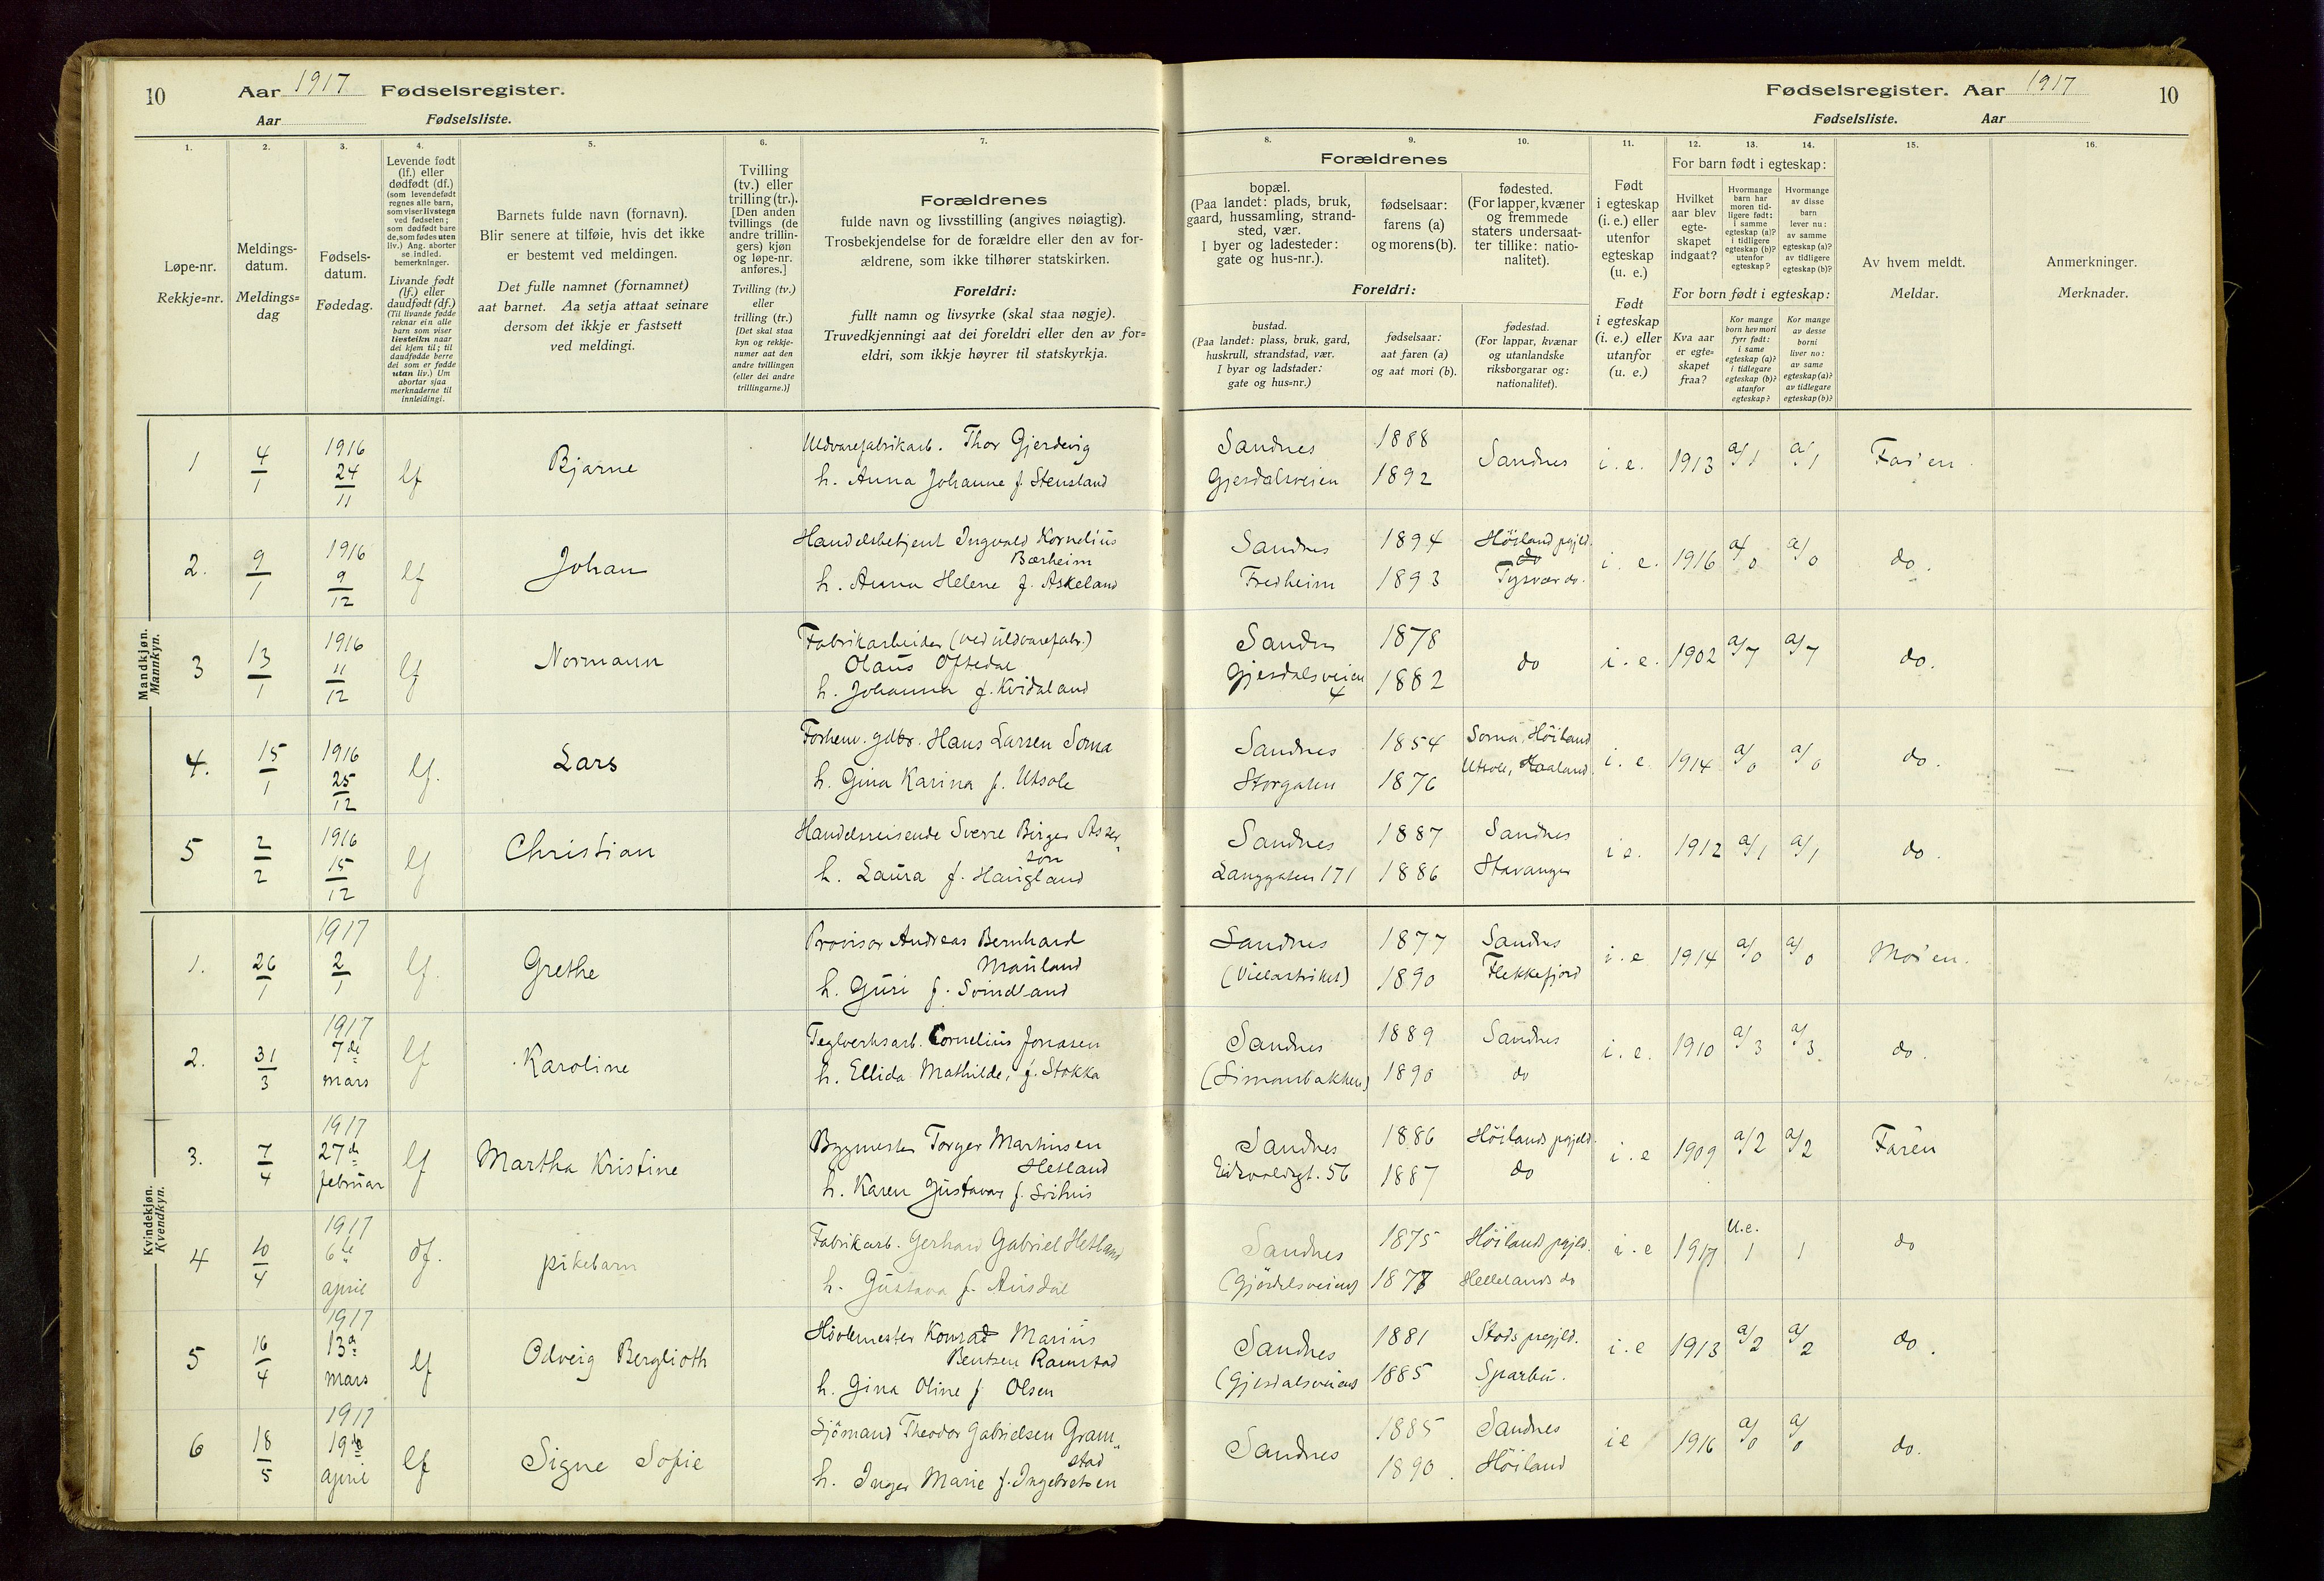 10 Aar 1917 Fødselsregister.
Aar Fødselsliste.
Fødselsregister. Aar 1917 10
Fødselsliste. Aar
1. 2. 3. 4. 5. 6. 7.
Løpe-nr.
Rekkje=nr.
Meldings-
datum.
Meldings=
dag
Fødsels-
datum.
Fødedag.
Levende født
(lf.) eller
dødfødt (df.)
(som levendefødt
regnes alle barn,
som viser livstegn
ved fødselen;
som dødfødt bare
de, som fødes uten
liv.) Ang. aborter
se indled.
bemerkninger.
Livande født
(lf.) eller
daudfødt (df.)
(Til livande fødde
reknar ein alle
barn som viser
livsteikn naar
dei kjem til; til
daudfødde berre
dei som er fødde
utan liv.) Um
abortar sjaa
merknaderne til
innleidingi.
Barnets fulde navn (fornavn).
Blir senere at tilføie, hvis det ikke
er bestemt ved meldingen.
Det fulle namnet (fornamnet)
aat barnet. Aa setja attaat seinare
dersom det ikkje er fastsett
ved meldingi.
Tvilling
(tv.) eller
trilling (tr.).
[Den anden
tvillings (de
andre trillin-
gers) kjøn
og løpe-nr.
anføres.]
Tvilling (tv.)
eller
trilling (tr.)
[Det skal staa
kyn og rekkje-
numer aat den
andre tvillingen
(eller dei andre
trillingarne.)]
Forældrenes
fulde navn og livsstilling (angives nøiagtig).
Trosbekjendelse for de forældre eller den av for-
ældrene, som ikke tilhører statskirken.
Foreldri:
fullt namn og livsyrke (skal staa nøgje).
Truvedkjenningi aat dei foreldri eller den av for=
eldri, som ikkje høyrer til statskyrkja.
8. 9. 10. 11. 12. 13. 14. 15. 16.
Forældrenes
bopæl.
(Paa landet: plads, bruk,
gaard, hussamling, strand-
sted, vær.
I byer og ladesteder:
gate og hus-nr.).
fødselsaar:
farens (a)
og morens (b).
fødested.
(For lapper, kvæner
og fremmede
staters undersaat-
ter tillike: natio-
nalitet).
Foreldri:
bustad.
(Paa landet: plass, bruk, gard,
huskrull, strandstad, vær.
I byar og ladstader:
gate og hus=nr.)
fødselsaar:
aat faren (a)
og aat mori (b).
fødestad.
(For lappar, kvænar
og utanlandske
riksborgarar og:
nationalitet).
Født
i egteskap
(i. e.) eller
utenfor
egteskap
(u. e.)
Født
i egteskap
(i. e.) eller
utanfor
(u. e.)
For barn født i egteskap:
Hvilket
aar blev
egte-
skapet
indgaat?
Hvormange
barn har
moren tid-
ligere født:
i samme
egteskap (a)?
i tidligere
egteskap (b)?
utenfor
egteskap?
Hvormange
av disse
barn
lever nu:
av samme
egteskap (a)?
av tidligere
egteskap (b)?
For born født i egteskap:
Kva aar
er egte-
skapet
fraa?
Kor mange
born hev mori
fyrr født:
i same
egteskap (a)?
i tidlegare
egteskap (b)?
utanfor
egteskap?
Kor mange
av desse
borni
liver no:
av same
egteskap (a)?
av tidlegare
egteskap (b)?
Av hvem meldt.
Meldar.
Anmerkninger.
Merknader.
Mandkjøn.
Mannkyn.
1 4/1 1916 24/11 lf Bjarne Uldvarefabrikarb. Thor Gjerdevig
h. Anna Johanne f. Stensland
Sandnes 1888 Sandnes i. e. 1913 a/1 a/1 Far'en.
Gjesdalsveien 1892
2. 9/1 1916 9/12 lf Johan Handelsbetjent Ingvald Kornelius
Bærheim
h. Anna Helene f. Askeland
Sandnes 1894 Höiland pgjld. i. e. 1916 a/0 a/0 do.
do
Fredheim 1893 Tysvær do.
3 13/1 1916 11/12 lf Normann Fabrikarbeider (ved uldvarefabr.)
Olaus Oftedal
h. Johanna f. Kvidaland
Sandn 1878 do i. e. 1902 a/7 a/7 do.
Gjesdalsveien 1882
4
4. 15/1 1916 25/12 lf. Lars Forhenv. gdbr. Hans Larsen Soma
h. Gina Karina f. Utsole
Sandnes 1854 Soma, Höiland i. e 1914 a/0 a/0 do.
Storgaten 1876 Utsole,
5 2/2 1916 15/12 lf Christian Handelsreisende Sverre Birger Asser„
son
h. Laura f. Haugland
Sandnes 1887 Sandnes i e. 1912 a/1 a/1 do.
Langgaten 171 1886 Stavanger
Kvindekjøn.
Kvendkyn.
1. 26/1 1917 2/1 lf. Grethe Provisor Andreas Bernhard
Mauland
h. Guri f. Svindland
Sandnes 1877 Sandnes i. e 1914 a/0 a/0 Mor'en.
(Villastriket) 1890 Flekkefjord
2. 31/3 1917 7de mars lf Karoline Teglverksarb. Cornelius Jonasen
h. Ellida Mathilde, f. Stokka
Sandnes 1889 Sandnes i. e. 1910 a/3 a/3 do.
(Simonsbakken) 1890 do
3. 7/4 1917 27de februar lf Martha Kristine Bygmester Torger Martinsen
Hetland
h. Karen Gustava f.
Sandnes 1886 Höilands pgjeld. i. e 1909 a/2 a/2 Faren
Eidsvoldsgt. 56 1887 do
4 10/4 1917 6te april df. pikebarn Fabrikarb. Gerhard Gabriel Hetland
h. Gustava f.
Sandnes 1875 Höilands pgjld. i. e 1917 u.e. 1 1 do
(Gjesdalsveien) 1877 Hellelands do
5 16/4 1917 13de mars lf Odveig Berglioth Hövlemester Konrad Marius
Bentsen Ramstad
h. Gina Oline f. Olsen
Sandnes 1881 Stods prgjld. i. e 1913 a/2 a/2 do.
(Gjesdalsveien) 1885 Sparbu.
6 18/5 1917 19de april lf Signe Sofie Sjömand Theodor Gabrielsen Gram„
stad
h. Inger Marie f. Ingebretsen
Sandnes 1885 Sandnes i e 1916 a/0 a/0 do.
1890. Höiland